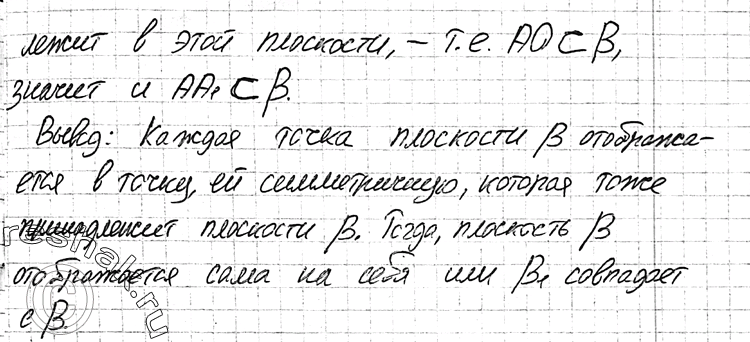 лежит в этой плоскости, – т.е. АО ⊂ β,
значит и АА₁ ⊂ β.
Вывод: Каждая точка плоскости β отобража-
ется в точку, ей симметричную, которая тоже
принадлежит плоскости β. Тогда, плоскость β
отображается сама на себя или β₁ совпадает
с β.
reshak.ru